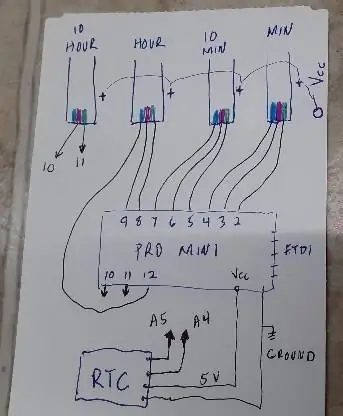 10
HOUR
HOUR
10
MIN
MIN
+
+
+
+
VCC
10
11
9 8 7 6 5 4 3 2
PRO MINI
FTDI
10 11 12
VCC
A5
A4
GROUND
RTC
5V